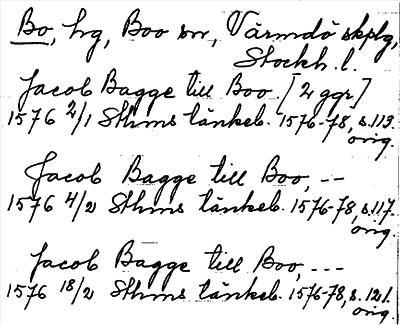 Bo, hg, Boo sn, Värmdö skplg,
Stockh. l.
Jacob Bagge till Boo. [2 ggr]
1576 2/1 Sthms tänkeb. 1576-78, s.113.
orig.
Jacob Bagge till Boo, --
1576 4/2 Sthms tänkeb. 1576-78, s.117.
orig.
Jacob Bagge till Boo, ---
1576 18/2 Sthms tänkeb. 1576-78, s.121.
orig.